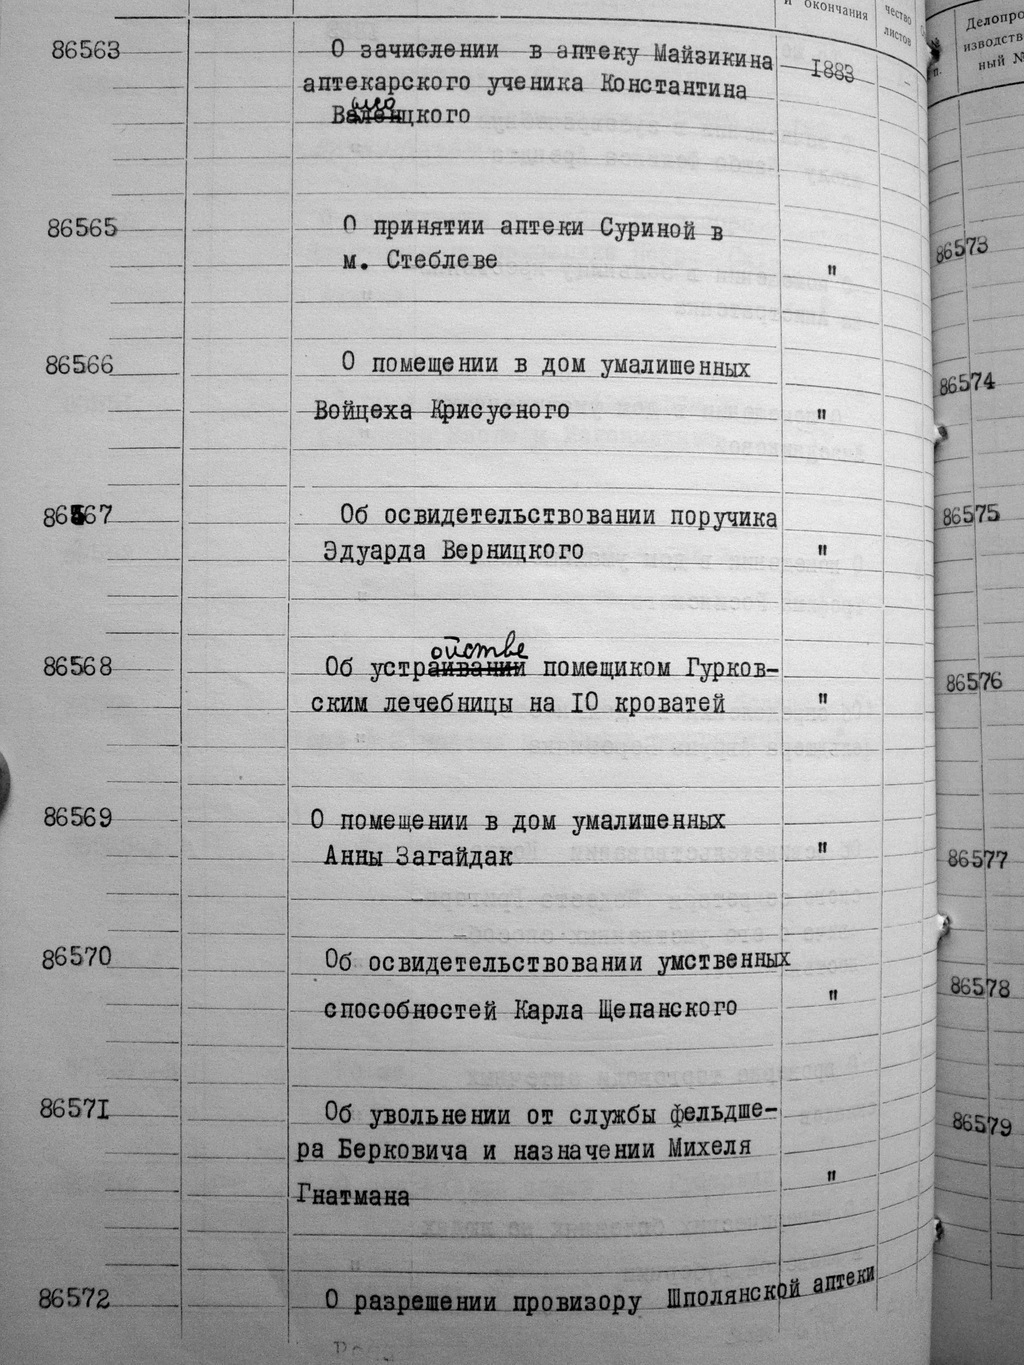 и окончания
чество
листов
86563 О зачислении в аптеку Майзикина 1883
аптекарского ученика Константина
Валенцкого
86565 О принятии аптеки Суриной в
м. Стеблеве "
86566 О помещении в дом умалишенных
Войцеха Крисусного "
86567 Об освидетельствовании поручика
Эдуарда Верницкого "
ойстве
86568 Об устраивании помещиком Гурков-
ским лечебницы на 10 кроватей "
86569 О помещении в дом умалишенных
Анны Загайдак "
86570 Об освидетельствовании умственных
способностей Карла Щепанского "
86571 Об увольнении от службы фельдше-
ра Берковича и назначении Михеля
Гнатмана "
86572 О разрешении провизору Шполянской аптеки
Делопро
изводств
ный №
п.
86573
86574
86575
86576
86577
86578
86579